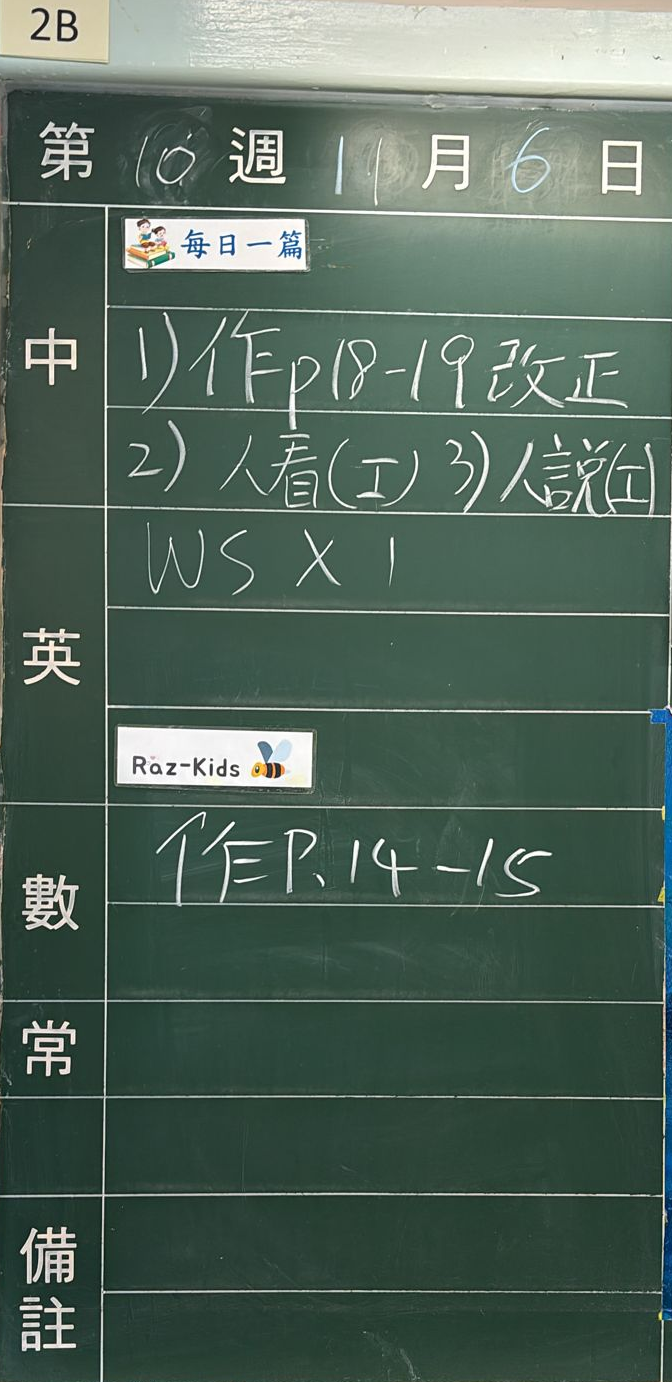 2B
第 10 週 11 月 6 日
中
每日一篇
1) 作p18-19改正
2) 人看(工) 3) 人說(工)
英
WS X 1
Raz-Kids
數
作P.14-15
常
備註